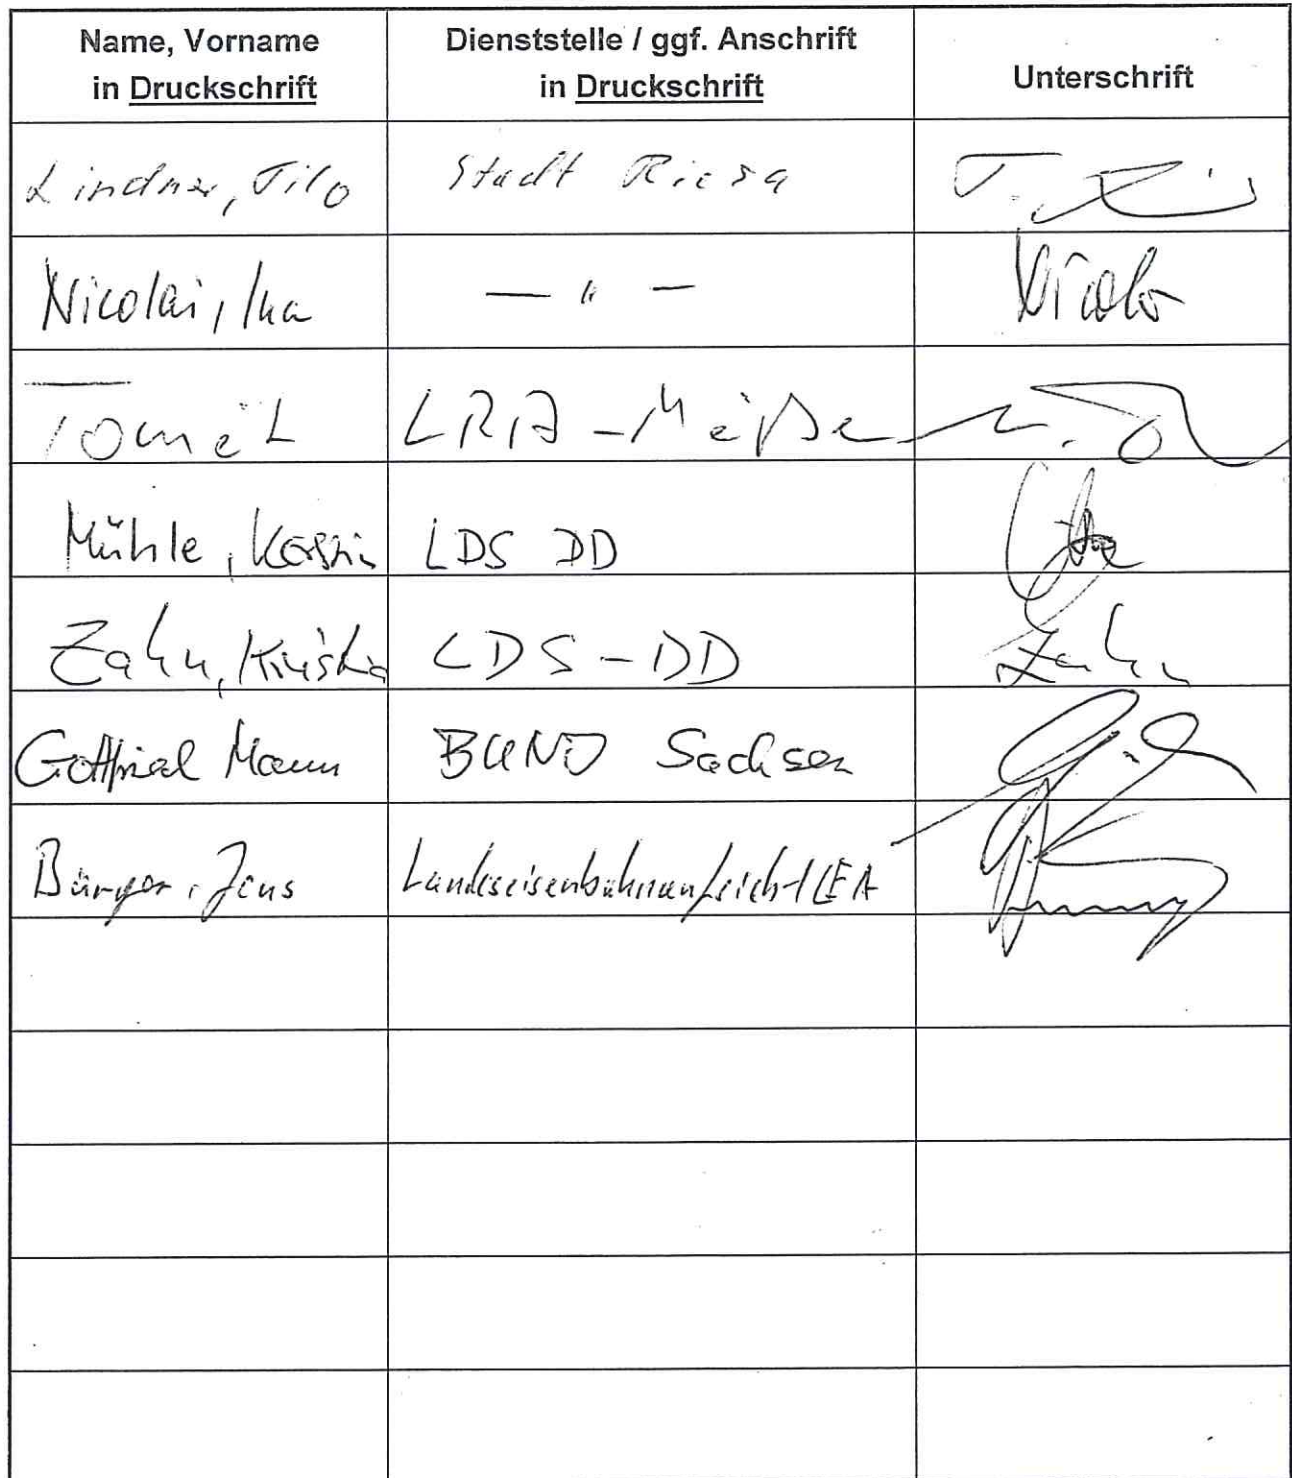 Name, Vorname
in Druckschrift
Dienststelle / ggf. Anschrift
in Druckschrift
Unterschrift
Lindner, Tilo Stadt Riesa T.
Nicolai, Ina — " —
LRA-Meißen
Mühle, Kerstin LDS DD
Zahn, LDS-DD Zahn
Gottfried Mann BUND Sachsen
Bürger, Jens Landeseisenbahnaufsicht LEA